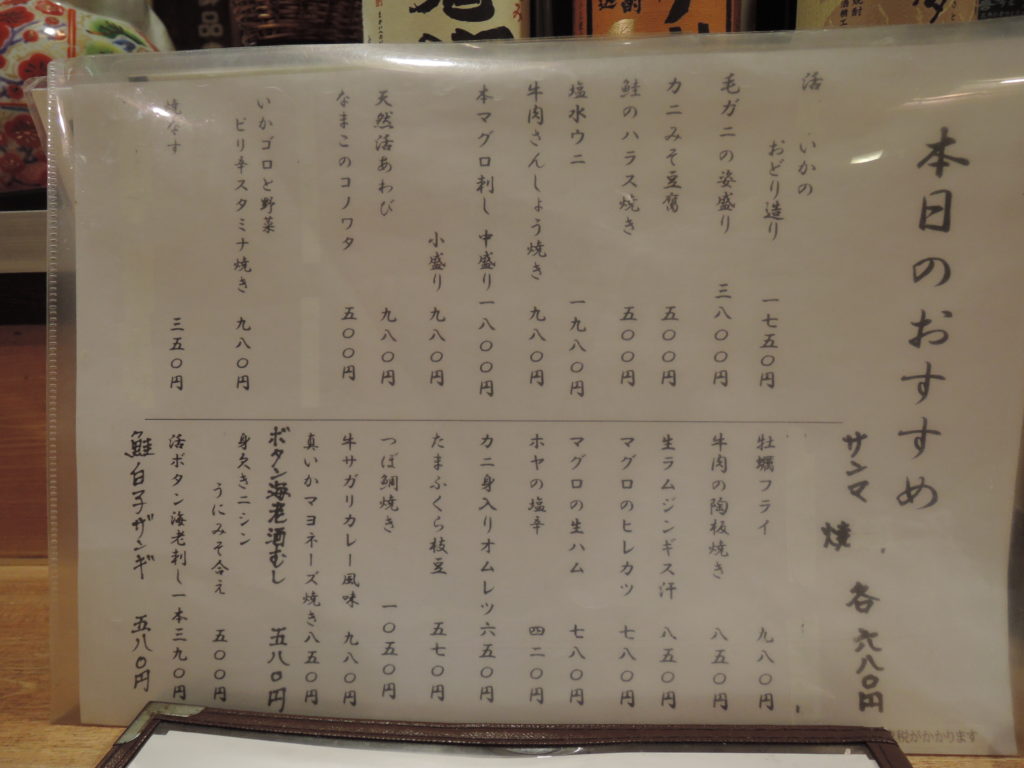 本日のおすすめ
サンマ 焼 各六八〇円
活 いかの
おどり造り 一七五〇円
毛ガニの姿盛り 三八〇〇円
カニみそ豆腐 五〇〇円
鮭のハラス焼き 五〇〇円
塩水ウニ 一九八〇円
牛肉さんしょう焼き 九八〇円
本マグロ刺し 中盛り 一八〇〇円
小盛り 九八〇円
天然活あわび 九八〇円
なまこのコノワタ 五〇〇円
いかゴロと野菜
ピリ辛スタミナ焼き 九八〇円
焼なす 三五〇円
牡蠣フライ 九八〇円
牛肉の陶板焼き 八五〇円
生ラムジンギス汗 八五〇円
マグロのヒレカツ 七八〇円
マグロの生ハム 七八〇円
ホヤの塩辛 四二〇円
カニ身入りオムレツ 六五〇円
たまふくら枝豆 五七〇円
つぼ鯛焼き 一〇五〇円
牛サガリカレー風味 九八〇円
真いかマヨネーズ焼き 八五〇円
ボタン海老酒むし 五八〇円
身欠きニシン
うにみそ合え 五〇〇円
活ボタン海老刺し 一本三九〇円
鮭白子ザンギ 五八〇円
税がかかります